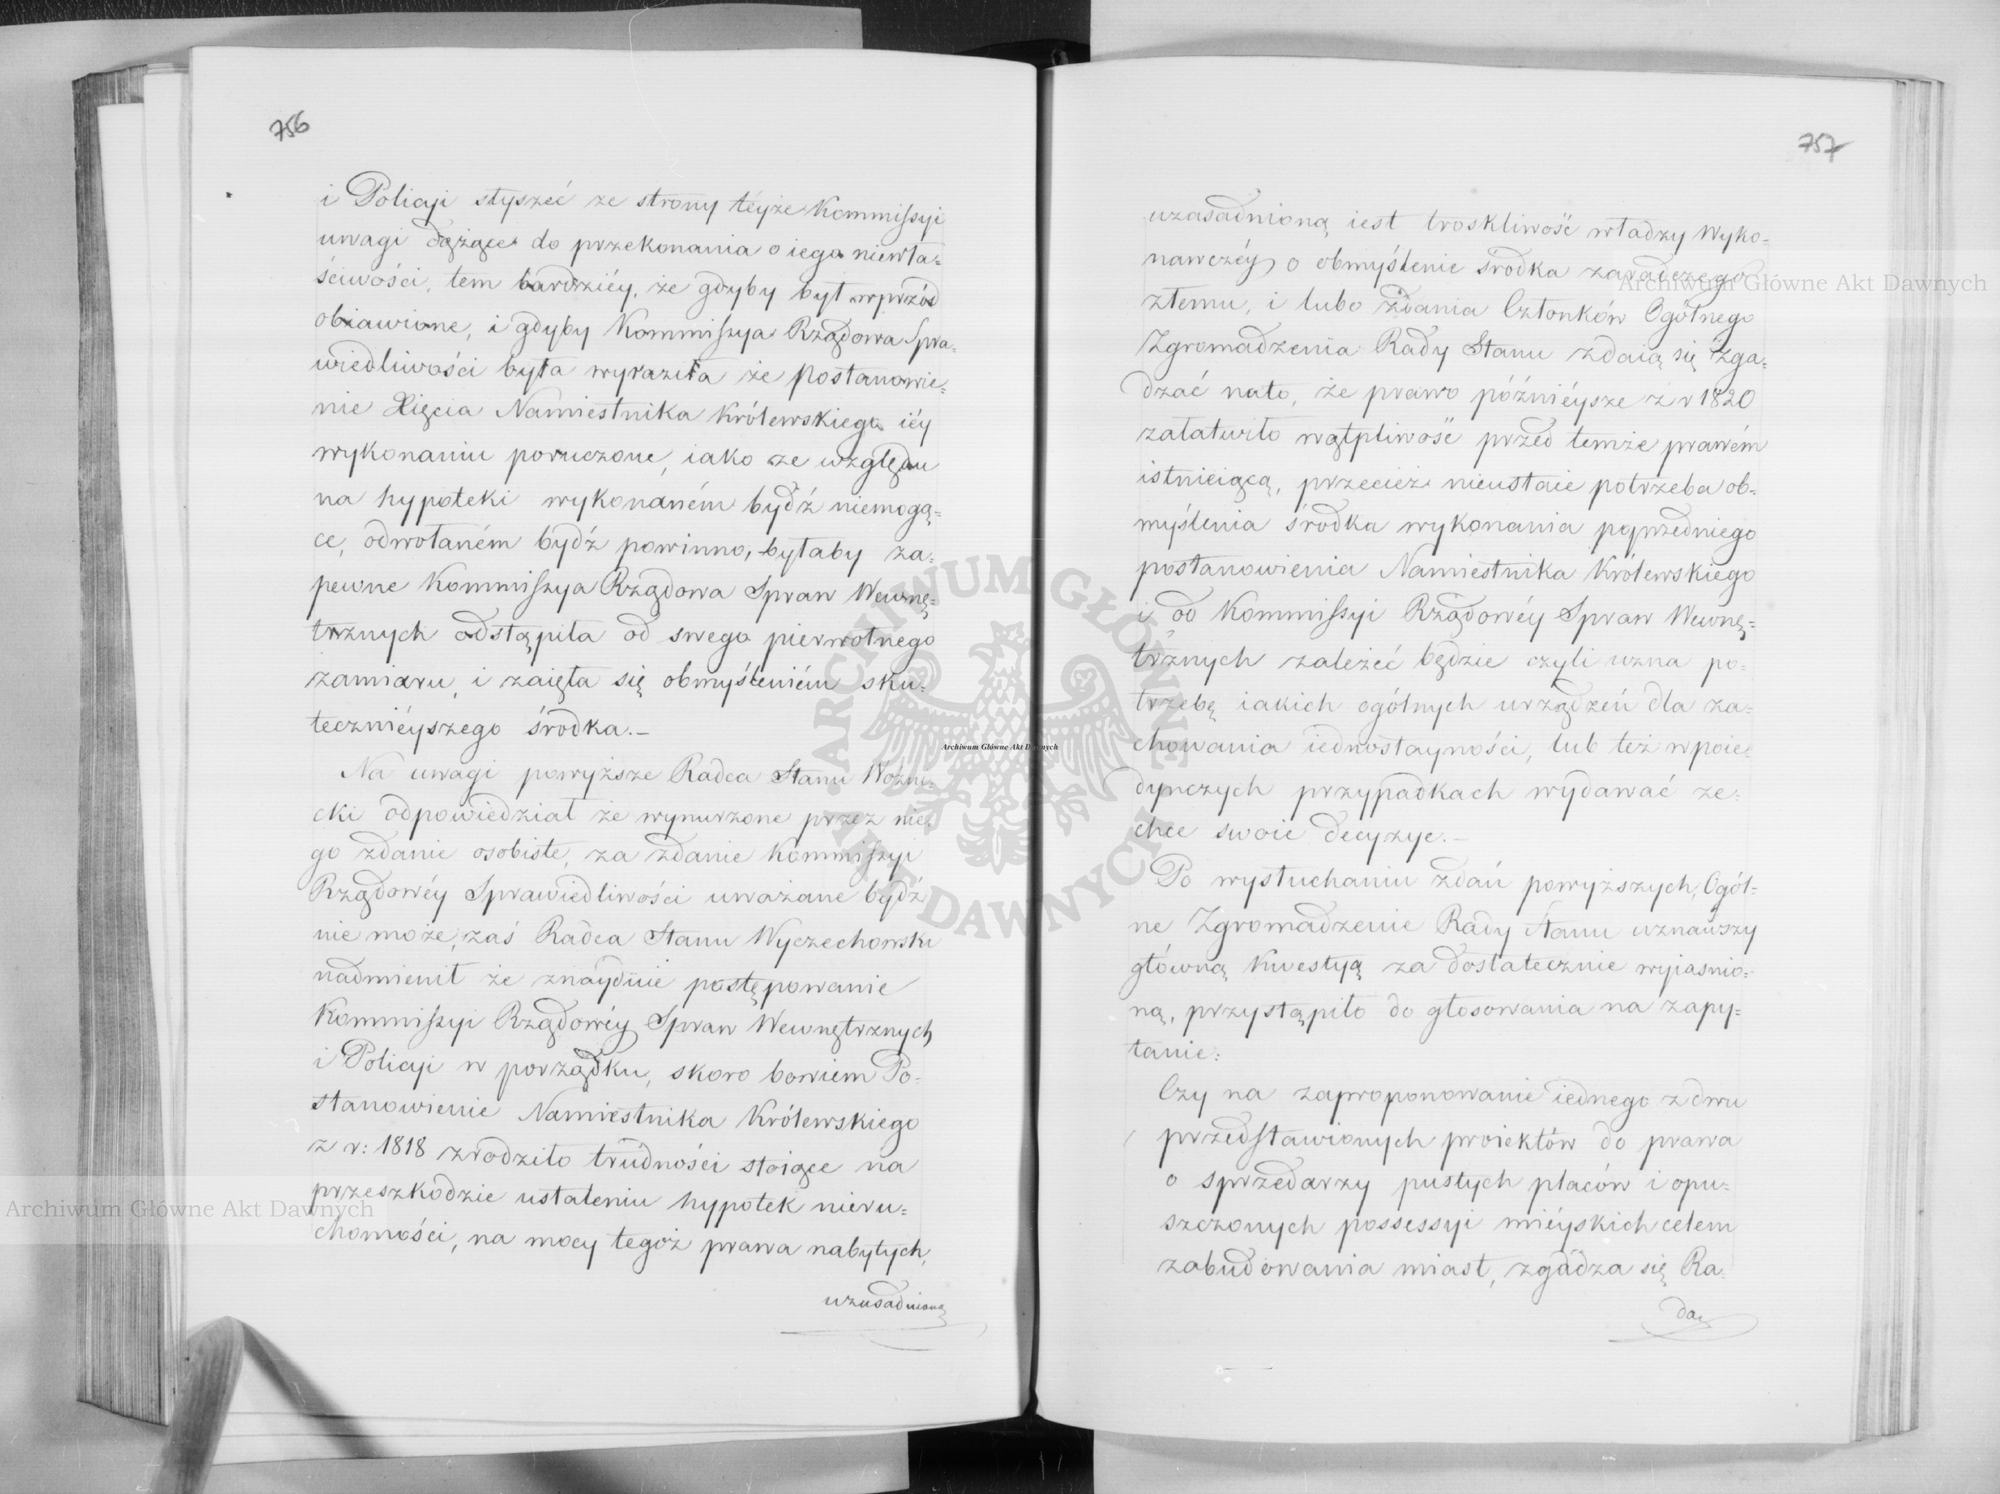 756
i Policyi słyszéć ze strony téyże Kommissyi
uwagi dążące do przekonania o iego niewła=
ściwości, tem bardziéy, że gdyby był wprzód
obiawione, i gdyby Kommissya Rządowa Spra=
wiedliwości była wyraziła że postanowie=
nie Xięcia Namiestnika Królewskiego iéy
wykonaniu poruczone, iako ze względu
na hypoteki wykonaném bydź niemogą=
ce, odwołaném bydź powinno, byłaby za=
pewne Kommissya Rządowa Spraw Wewnę=
trznych odstąpiła od swego pierwotnego
zamiaru, i zaięła się obmyśleniém sku=
tecznieyszego środka.—
Na uwagi powyższe Radca Stanu Woźni=
cki odpowiedział że wynurzone przez nie=
go zdanie osobiste, za zdanie Kommissyi
Rządowéy Sprawiedliwości uważane bydź
nie może, zaś Radca Stanu Wyczechowski
nadmienił że znayduie postępowanie
Kommissyi Rządowéy Spraw Wewnętrznych
i Policyi w porządku, skoro bowiem Po=
stanowienie Namiestnika Królewskiego
z r: 1818 zrodziło trudności stoiące na
przeszkodzie ustaleniu hypotek nieru=
chomości, na mocy tegoż prawa nabytych,
uzasadnioną
757
uzasadnioną iest troskliwość władzy Wyko=
nawczéy o obmyślenie środka zaradczego
złemu, i lubo zdania Członków Ogólnego
Zgromadzenia Rady Stanu zdaią się zga=
dzać nato, że prawo późniéysze z r 1820
załatwiło wątpliwość przed temże prawém
istnieiącą, przecież nieustaie potrzeba ob=
myślenia środka wykonania poprzedniego
postanowienia Namiestnika Królewskiego
i od Kommissyi Rządowéy Spraw Wewnę=
trznych zależéć będzie czyli uzna po=
trzebę iakich ogólnych urządzeń dla za=
chowania iednostayności, lub też w poie=
dynczych przypadkach wydawać ze=
chce swoie decyzye.—
Po wysłuchaniu zdań powyższych, Ogól=
ne Zgromadzenie Rady Stanu uznawszy
główną kwestyą za dostatecznie wyiaśnio=
ną, przystąpiło do głosowania na zapy=
tanie:
Czy na zaproponowanie iednego z dwu
przedstawionych proiektów do prawa
o sprzedarzy pustych placów i opu=
szczonych possessyi mieyskich celem
zabudowania miast, zgadza się Ra=
da,
Archiwum Główne Akt Dawnych
Archiwum Główne Akt Dawnych
Archiwum Główne Akt Dawnych
ARCHIWUM GŁÓWNE AKT DAWNYCH